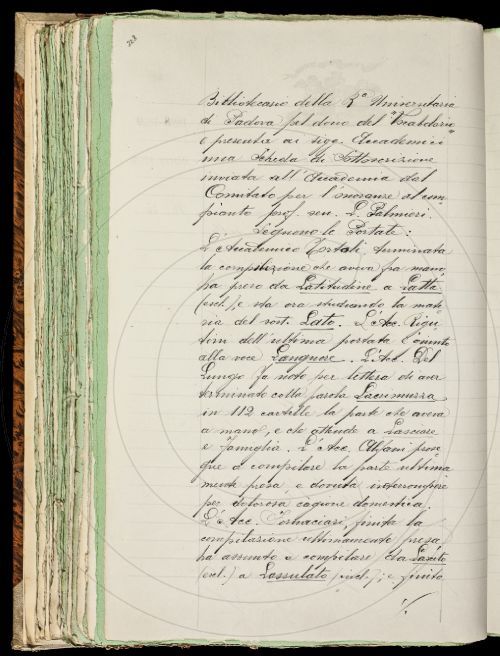 Bibliotecario della Rª Universitaria
di Padova pel dono del "Vocabolario"
e presenta ai sigg. Accademici
una Scheda di Sottoscrizione
inviata all'Accademia dal
Comitato per l'onoranze al com-
pianto prof. sen. L. Palmieri.
Seguono le Portate:
L'Accademico Tortoli, terminata
la compilazione che aveva fra mano,
ha preso da Latitudine a Latta
(escl.), e sta ora studiando la mate-
ria del vort. Lato. L'Ac. Rigu-
tini dell'ultima portata è giunto
alla voce Languore. L'Ac. Del
Lungo fa noto per lettera di aver
terminato colla parola Lacrimuzza
in 112 cartelle la parte che aveva
a mano, e che attende a Lasciare
e famiglia. L'Acc. Alfani prose-
gue a compilare la parte ultima-
mente presa, e dovuta interrompere
per dolorosa cagione domestica.
L'Acc. Tornaciari, finita la
compilazione ultimamente presa,
ha assunto a compilare da Lascito
(escl.) a Lassulato (incl.); e finito